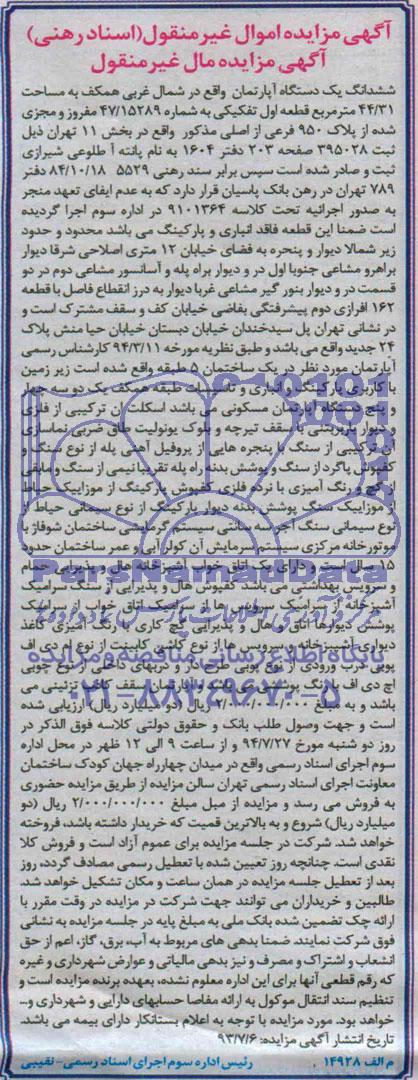 آگهی مزایده اموال غیرمنقول (اسناد رهنی)
آگهی مزایده مال غیرمنقول
ششدانگ یک دستگاه آپارتمان واقع در شمال غربی همکف به مساحت
۴۴/۳۱ مترمربع قطعه اول تفکیکی به شماره ۴۷/۱۵۲۸۹ مفروز و مجزی
شده از پلاک ۹۵۰ فرعی از اصلی مذکور واقع در بخش ۱۱ تهران ذیل
ثبت ۳۹۵۰۲۸ صفحه ۲۰۳ دفتر ۱۶۰۴ به نام پانته آ طلوعی شیرازی
ثبت و صادر شده است سپس برابر سند رهنی ۵۵۲۹ ۸۴/۱۰/۱۸ دفتر
۷۸۹ تهران در رهن بانک پاسیان قرار دارد که به عدم ایفای تعهد منجر
به صدور اجرائیه تحت کلاسه ۹۱۰۱۳۶۴ در اداره سوم اجرا گردیده
است ضمنا این قطعه فاقد انباری و پارکینگ می باشد محدود و حدود
زیر شمالا دیوار و پنجره به فضای خیابان ۱۲ متری اصلاحی شرقا دیوار
براهرو مشاعی جنوبا اول در و دیوار براه پله و آسانسور مشاعی دوم در دو
قسمت در و دیوار بنور گیر مشاعی غربا دیوار به درز انقطاع فاصل با قطعه
۱۶۲ افرازی دوم پیشرفتگی بفاضی خیابان کف و سقف مشترک است و
در نشانی تهران پل سیدخندان خیابان دبستان خیابان حیا منش پلاک
۲۴ جدید واقع می باشد و طبق نظریه مورخه ۹۴/۳/۱۱ کارشناس رسمی
آپارتمان مورد نظر در یک ساختمان ۵ طبقه واقع شده است زیر زمین
با کاربری پارکینگ و انباری و تاسیسات طبقه همکف یک دو سه چهار
و پنج دستگاه آپارتمان مسکونی می باشد اسکلت آن ترکیبی از فلزی
و دیوار باربتنی با سقف تیرچه و بلوک یونولیت طاق ضربی نماسازی
آن ترکیبی از سنگ با پنجره هایی از پروفیل آهنی پله از نوع سنگ و
کفپوش پاگرد از سنگ و پوشش بدنه راه پله تقریبا نیمی از سنگ و مابقی
از گچ و رنگ آمیزی با نرده فلزی کفپوش پارکینگ از موزاییک حیاط
از موزاییک سنگ پوشش بدنه دیوار پارکینگ از نوع سیمانی حیاط از
نوع سیمانی سنگ آجر سه سانتی سیستم گرمایشی ساختمان شوفاژ با
موتورخانه مرکزی سیستم سرمایش آن کولر آبی و عمر ساختمان حدود
۱۵ سال است و دارای یک اتاق خواب آشپزخانه هال و پذیرایی حمام
و سرویس بهداشتی می باشد کفپوش هال و پذیرایی از سنگ سرامیک
آشپزخانه از سرامیک سرویس ها از سرامیک اتاق خواب از سرامیک
پوشش دیوارها اتاق و هال و پذیرایی گچ کاری با رنگ آمیزی کاغذ
دیواری آشپزخانه و سرویس ها از نوع کاشی کابینت از نوع ام دی اف
اچ دی اف با رنگ پوششی می باشد و آپارتمان سقف کاذب تزئینی می
باشد و به مبلغ ۲/۰۰۰/۰۰۰/۰۰۰ ریال (دو میلیارد ریال) ارزیابی شده
است و جهت وصول طلب بانک و حقوق دولتی کلاسه فوق الذکر در
روز دو شنبه مورخ ۹۴/۷/۲۷ و از ساعت ۹ الی ۱۲ ظهر در محل اداره
سوم اجرای اسناد رسمی واقع در میدان چهارراه جهان کودک ساختمان
معاونت اجرای اسناد رسمی تهران سالن مزایده از طریق مزایده حضوری
به فروش می رسد و مزایده از مبل مبلغ ۲/۰۰۰/۰۰۰/۰۰۰ ریال (دو
میلیارد ریال) شروع و به بالاترین قمیت که خریدار داشته باشد، فروخته
خواهد شد. شرکت در جلسه مزایده برای عموم آزاد است و فروش کلا
نقدی است. چنانچه روز تعیین شده با تعطیل رسمی مصادف گردد، روز
بعد از تعطیل جلسه مزایده در همان ساعت و مکان تشکیل خواهد شد.
طالبین و خریداران می توانند جهت شرکت در مزایده در وقت مقرر با
ارائه چک تضمین شده بانک ملی به مبلغ پایه در جلسه مزایده به نشانی
فوق شرکت نمایند. ضمنا بدهی های مربوط به آب، برق، گاز، اعم از حق
انشعاب و اشتراک و مصرف و نیز بدهی مالیاتی و عوارض شهرداری و غیره
که رقم قطعی آنها برای این اداره معلوم نشده، بعهده برنده مزایده است و
تنظیم سند انتقال موکول به ارائه مفاصا حسابهای دارایی و شهرداری و...
خواهد بود. مورد مزایده با توجه به اعلام بستانکار دارای بیمه می باشد.
تاریخ انتشار آگهی مزایده: ۹۳/۷/۶
م الف ۱۴۹۲۸ رئیس اداره سوم اجرای اسناد رسمی - نقیبی
ParsNamadData
پایگاه اطلاع رسانی مناقصه و مزایده
۰۲۱-۸۸۳۴۹۶۷۰-۵